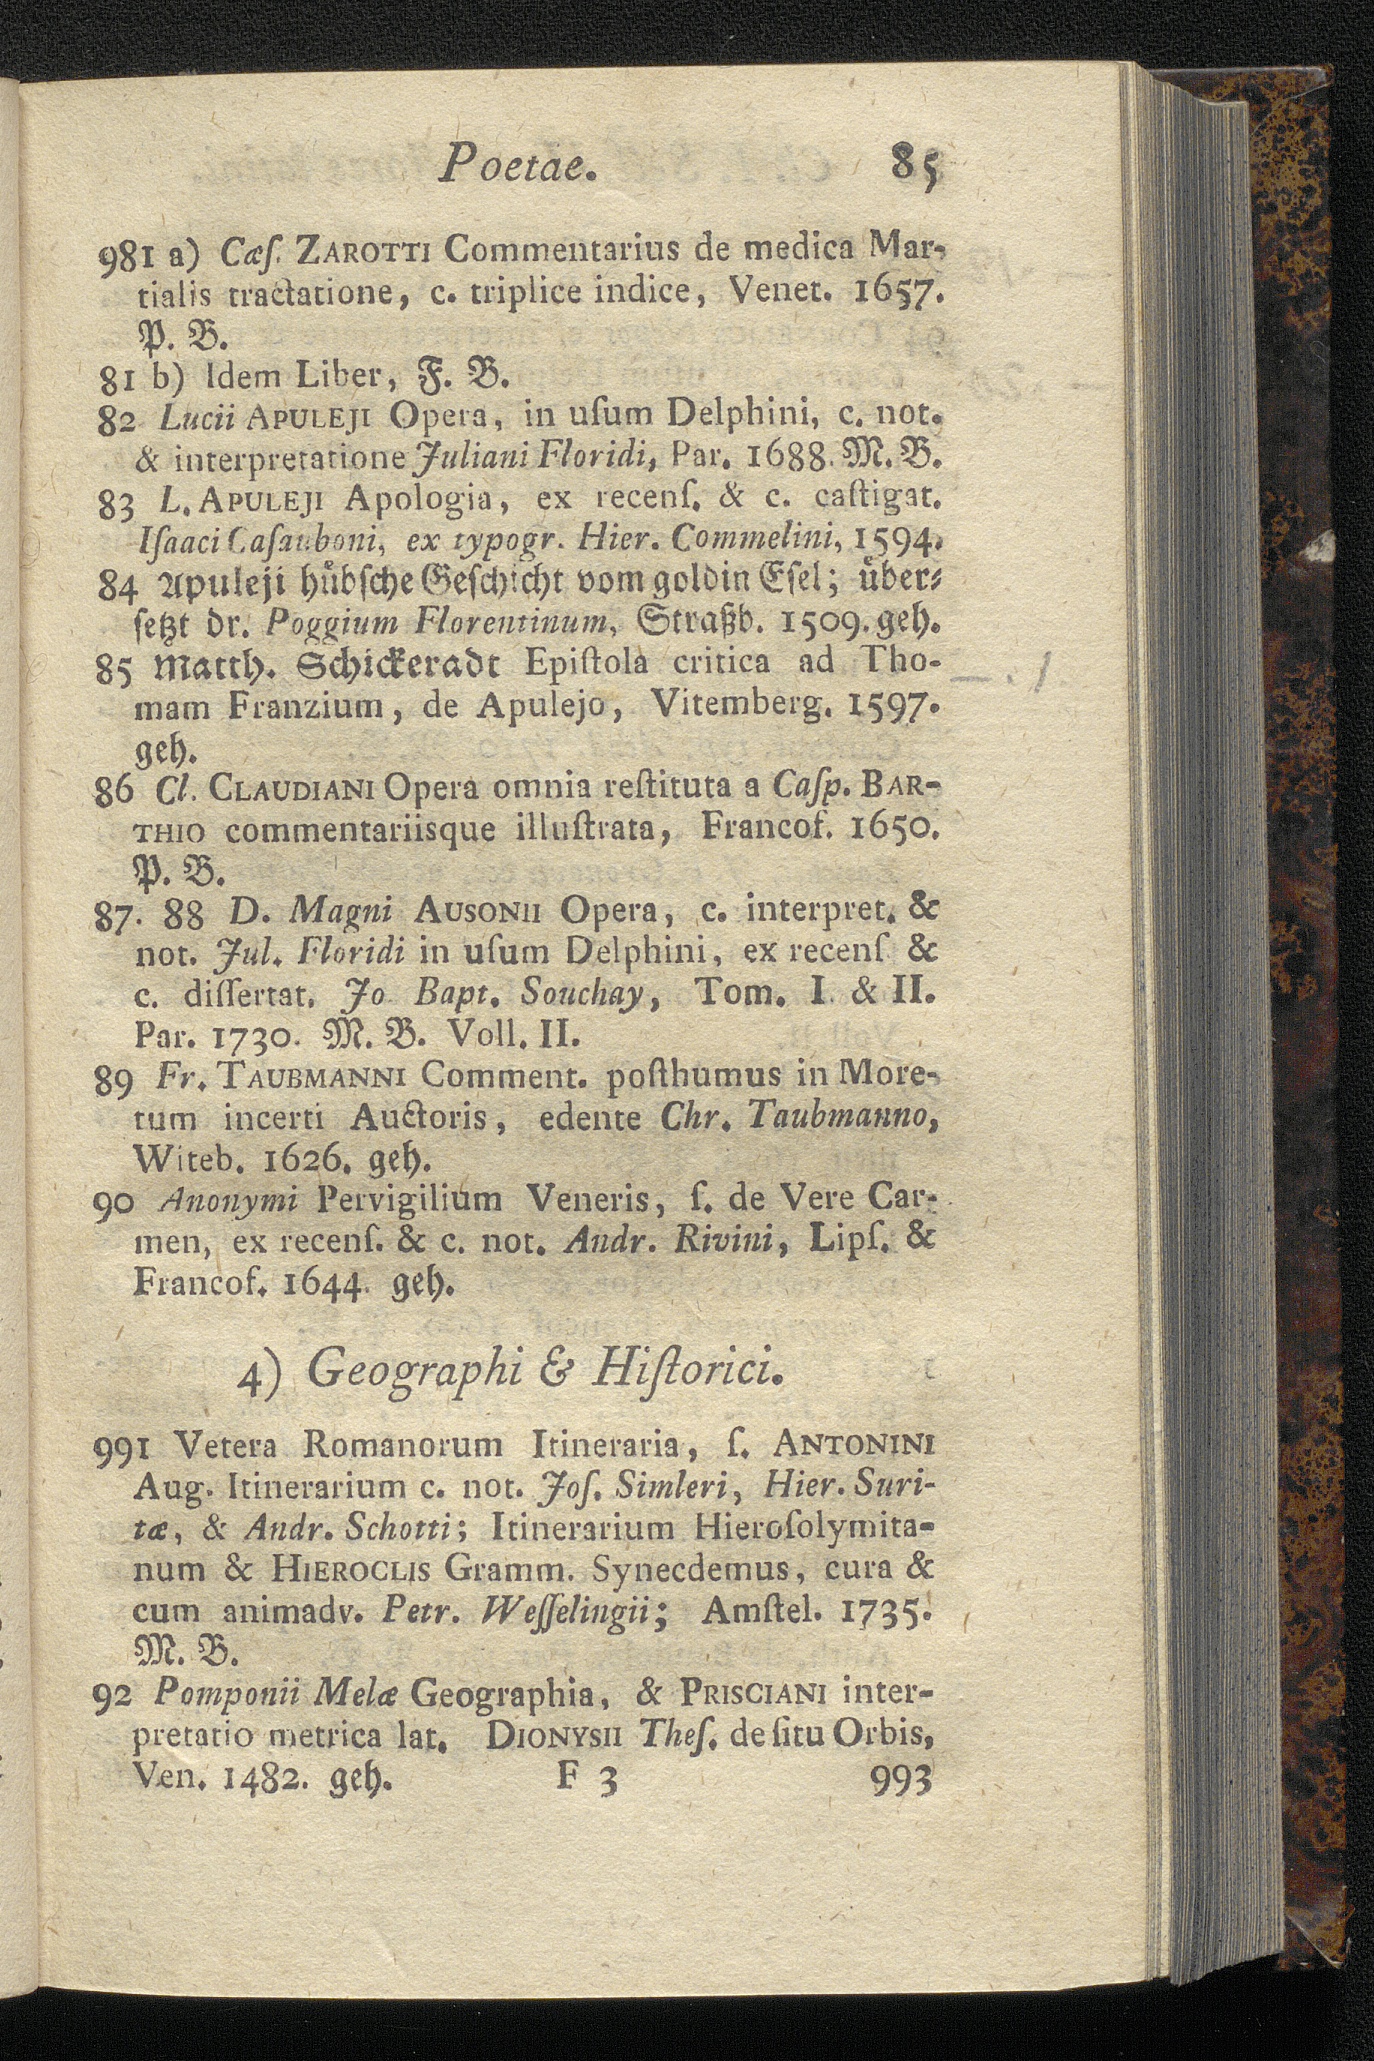 Poetae. 85
981 a) Cæſ. ZAROTTI Commentarius de medica Mar-
tialis tractatione, c. triplice indice, Venet. 1657.
P. B.
81 b) Idem Liber, F. B.
82 Lucii APULEJI Opera, in uſum Delphini, c. not.
& interpretatione Juliani Floridi, Par. 1688. M. B.
83 L. APULEJI Apologia, ex recenſ. & c. caſtigat.
Iſaaci Caſauboni, ex typogr. Hier. Commelini, 1594.
84 Apuleji huͤbſche Geſchicht vom goldin Eſel; uͤber-
ſetzt dr. Poggium Florentinum, Straßb. 1509. geh.
85 Matth. Schickeradt Epiſtola critica ad Tho-
mam Franzium, de Apulejo, Vitemberg. 1597.
geh.
86 Cl. CLAUDIANI Opera omnia reſtituta a Caſp. BAR-
THIO commentariisque illuſtrata, Francof. 1650.
P. B.
87. 88 D. Magni AUSONII Opera, c. interpret. &
not. Jul. Floridi in uſum Delphini, ex recenſ &
c. diſſertat. Jo Bapt. Souchay, Tom. I. & II.
Par. 1730. M. B. Voll. II.
89 Fr. TAUBMANNI Comment. poſthumus in More-
tum incerti Auctoris, edente Chr. Taubmanno,
Witeb. 1626. geh.
90 Anonymi Pervigilium Veneris, ſ. de Vere Car-
men, ex recenſ. & c. not. Andr. Rivini, Lipſ. &
Francof. 1644. geh.
4) Geographi & Hiſtorici.
991 Vetera Romanorum Itineraria, ſ. ANTONINI
Aug. Itinerarium c. not. Joſ. Simleri, Hier. Suri-
tæ, & Andr. Schotti; Itinerarium Hieroſolymita-
num & HIEROCLIS Gramm. Synecdemus, cura &
cum animadv. Petr. Weſſelingii; Amſtel. 1735.
M. B.
92 Pomponii Melæ Geographia, & PRISCIANI inter-
pretatio metrica lat. DIONYSII Theſ. de ſitu Orbis,
Ven. 1482. geh. F 3 993